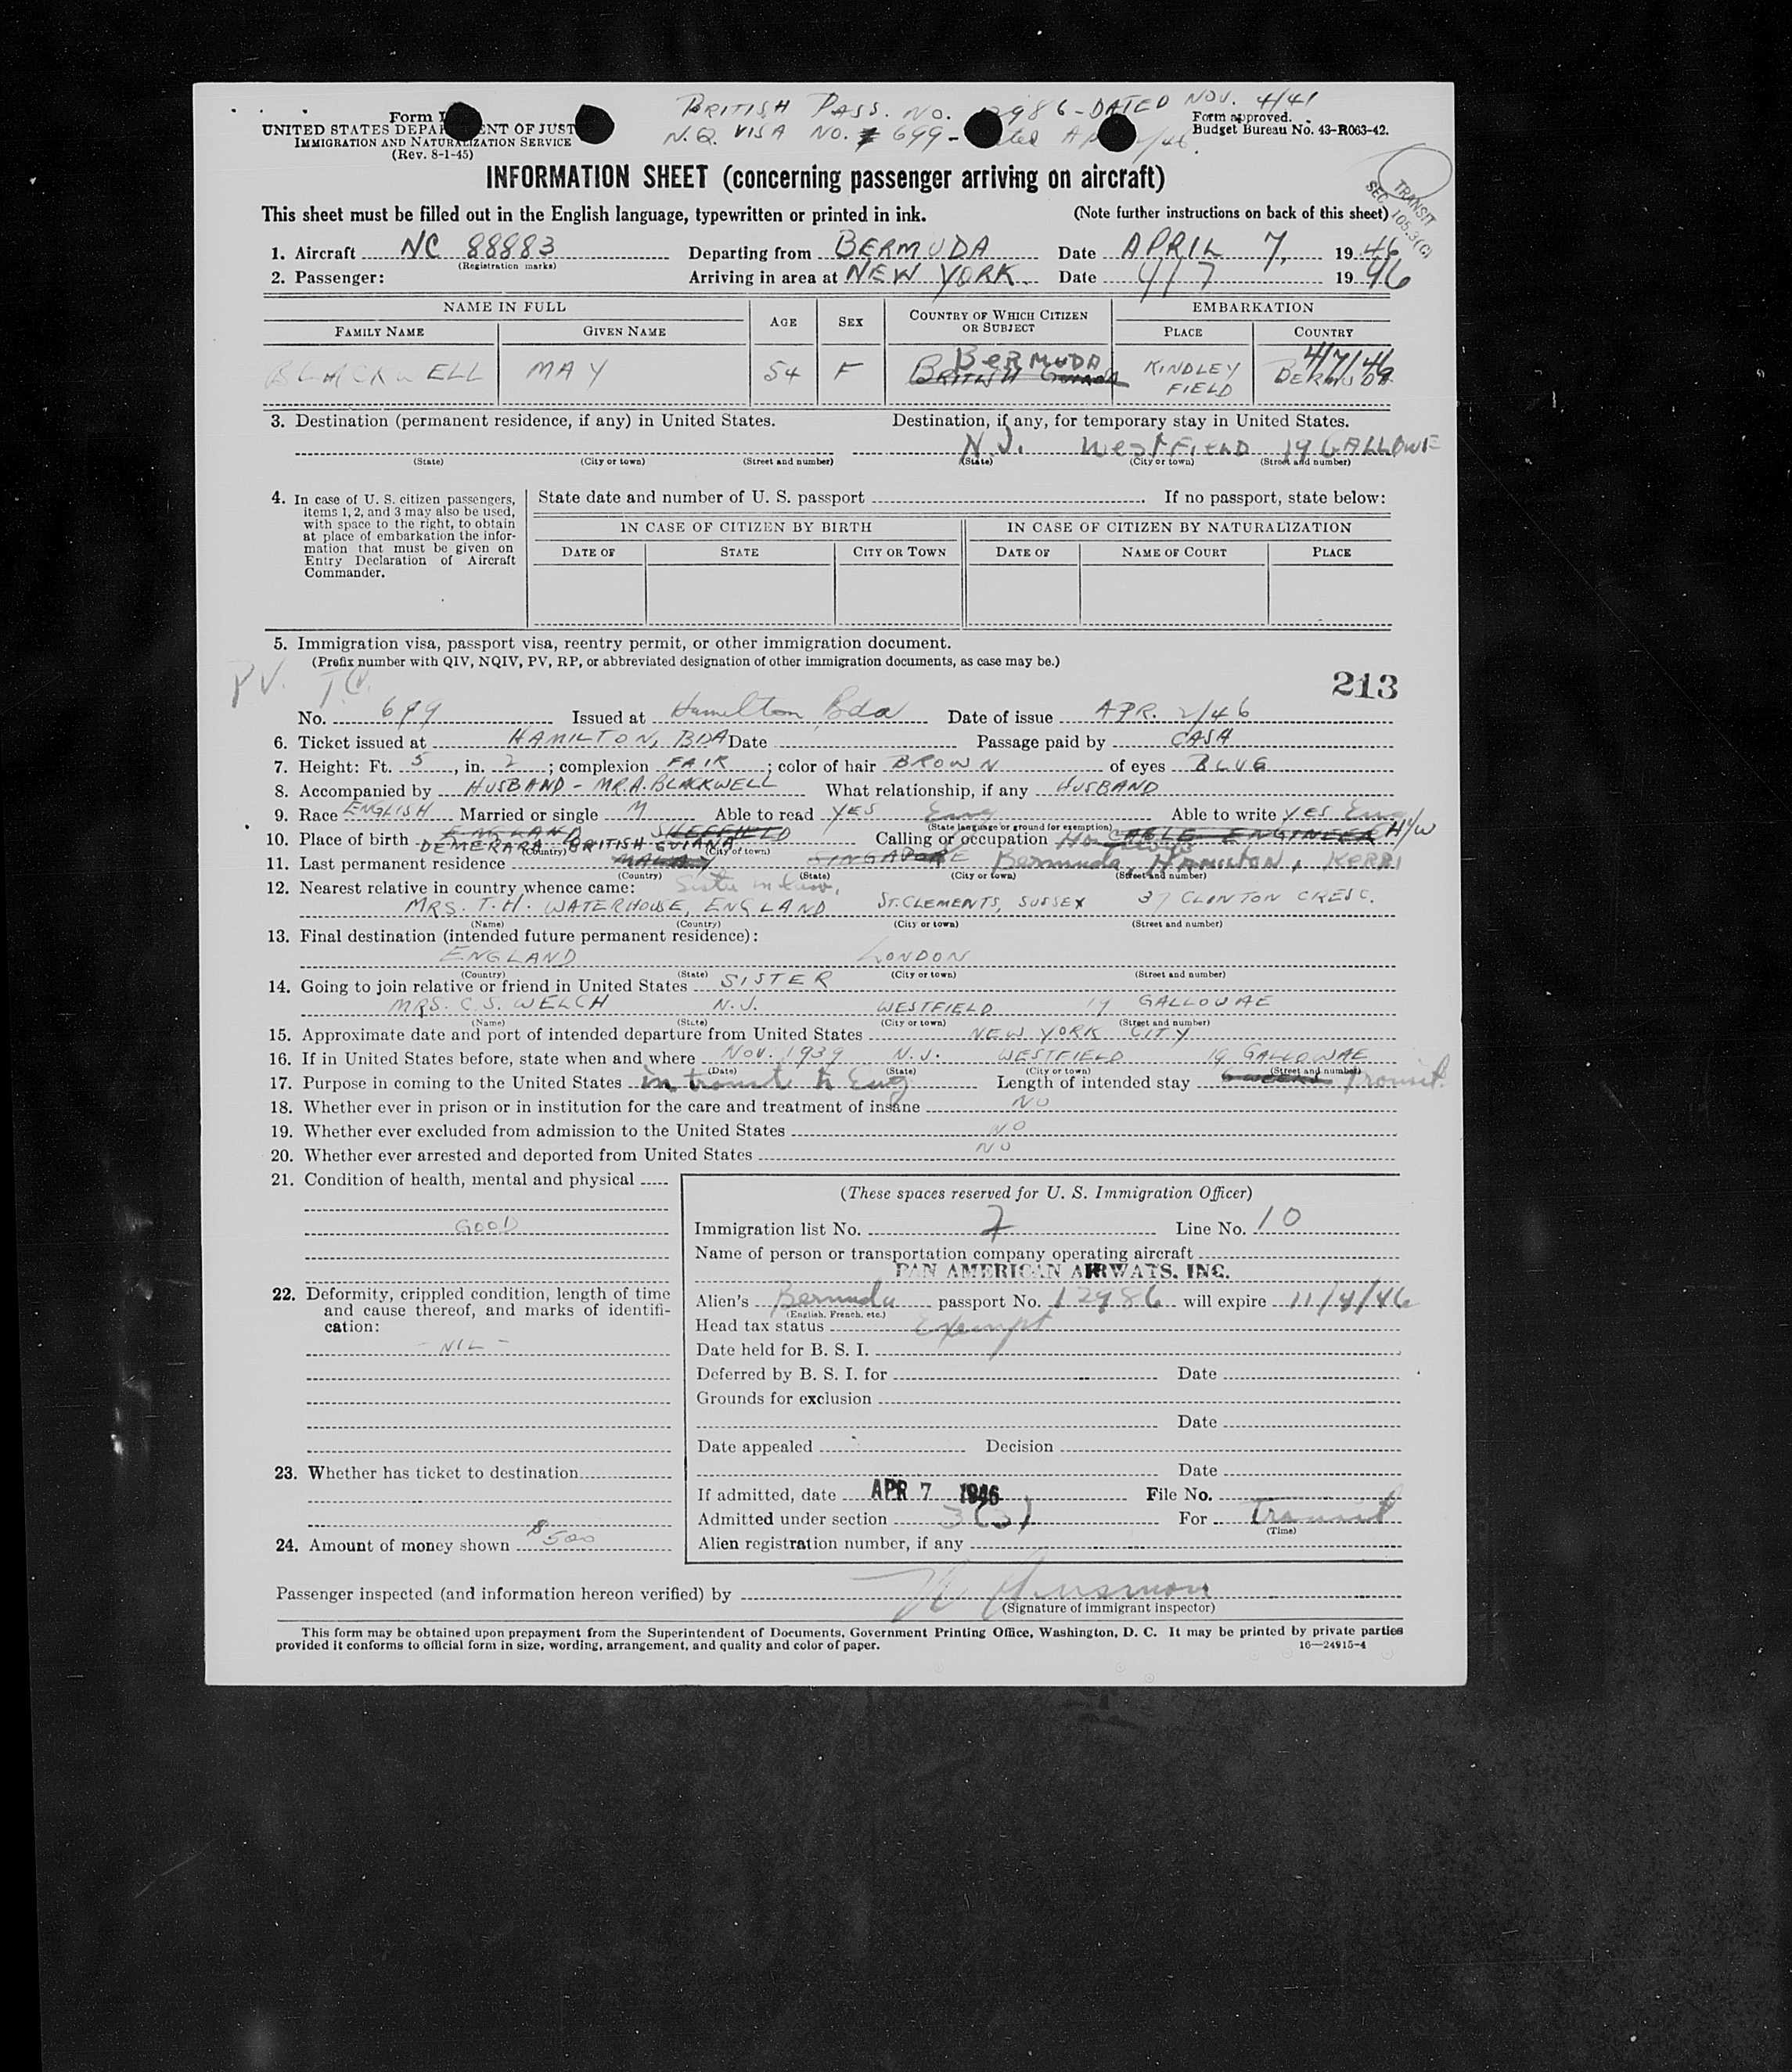 BRITISH PASS. NO. 2986 - DATED NOV. 4/41
Form I
UNITED STATES DEPAR ENT OF JUST
IMMIGRATION AND NATURALIZATION SERVICE
(Rev. 8-1-45)
N.Q. VISA NO. # 699 - ted AP /46.
Form approved.
Budget Bureau No. 43-R063-42.
INFORMATION SHEET (concerning passenger arriving on aircraft)
TRANSIT
SEC. 105.3(C)
This sheet must be filled out in the English language, typewritten or printed in ink. (Note further instructions on back of this sheet)
1. Aircraft NC 88883 Departing from BERMUDA Date APRIL 7, 1946
(Registration marks)
2. Passenger: Arriving in area at NEW YORK. Date 4/7 1946
NAME IN FULL AGE SEX COUNTRY OF WHICH CITIZEN OR SUBJECT EMBARKATION
FAMILY NAME GIVEN NAME PLACE COUNTRY
BERMUDA 4/7/46
BLACKWELL MAY 54 F BRITISH GUIANA KINDLEY FIELD BERMUDA
3. Destination (permanent residence, if any) in United States. Destination, if any, for temporary stay in United States.
N.J. WESTFIELD 19 GALLOWE
(State) (City or town) (Street and number) (State) (City or town) (Street and number)
4. In case of U. S. citizen passengers, items 1, 2, and 3 may also be used, with space to the right, to obtain at place of embarkation the information that must be given on Entry Declaration of Aircraft Commander.
State date and number of U. S. passport If no passport, state below:
IN CASE OF CITIZEN BY BIRTH IN CASE OF CITIZEN BY NATURALIZATION
DATE OF STATE CITY OR TOWN DATE OF NAME OF COURT PLACE
5. Immigration visa, passport visa, reentry permit, or other immigration document.
(Prefix number with QIV, NQIV, PV, RP, or abbreviated designation of other immigration documents, as case may be.)
PV. 213
No. 699 Issued at Hamilton Bda Date of issue APR. 2/46
6. Ticket issued at HAMILTON, BDA Date Passage paid by CASH
7. Height: Ft. 5, in. 2; complexion FAIR; color of hair BROWN of eyes BLUE
8. Accompanied by HUSBAND - MR. A. BLACKWELL What relationship, if any HUSBAND
9. Race ENGLISH Married or single M Able to read YES Eng Able to write YES Eng
(State language or ground for exemption)
ENGLAND SHEFFIELD
10. Place of birth DEMERARA BRITISH GUIANA Calling or occupation CABLE ENGINEER H/W
(Country) (City of town)
11. Last permanent residence MALAY SINGAPORE Bermuda, HAMILTON,
(Country) (State) (City or town) (Street and number)
12. Nearest relative in country whence came: Sister in law,
MRS. T. H. WATERHOUSE, ENGLAND ST. CLEMENTS, SUSSEX 37 CLINTON CRESC.
(Name) (Country) (City or town) (Street and number)
13. Final destination (intended future permanent residence):
ENGLAND LONDON
(Country) (State) (City or town) (Street and number)
14. Going to join relative or friend in United States SISTER
MRS. C. S. WELCH N.J. WESTFIELD 19 GALLOWAE
(Name) (State) (City or town) (Street and number)
15. Approximate date and port of intended departure from United States NEW YORK CITY
16. If in United States before, state when and where NOV. 1939 N.J. WESTFIELD 19 GALLOWAE
(Date) (State) (City or town) (Street and number)
17. Purpose in coming to the United States in transit to Eng Length of intended stay 6 WEEKS Transit
18. Whether ever in prison or in institution for the care and treatment of insane NO
19. Whether ever excluded from admission to the United States NO
20. Whether ever arrested and deported from United States NO
21. Condition of health, mental and physical
GOOD
22. Deformity, crippled condition, length of time and cause thereof, and marks of identification:
- NIL -
23. Whether has ticket to destination
24. Amount of money shown $500
(These spaces reserved for U. S. Immigration Officer)
Immigration list No. 7 Line No. 10
Name of person or transportation company operating aircraft
PAN AMERICAN AIRWAYS, INC.
Alien's Bermuda passport No. 12986 will expire 11/4/46
(English, French, etc.)
Head tax status Exempt
Date held for B. S. I.
Deferred by B. S. I. for Date
Grounds for exclusion
Date
Date appealed Decision
Date
If admitted, date APR 7 1946 File No.
Admitted under section 3(3) For Transit
(Time)
Alien registration number, if any
Passenger inspected (and information hereon verified) by
(Signature of immigrant inspector)
This form may be obtained upon prepayment from the Superintendent of Documents, Government Printing Office, Washington, D. C. It may be printed by private parties
provided it conforms to official form in size, wording, arrangement, and quality and color of paper. 16—24915-4